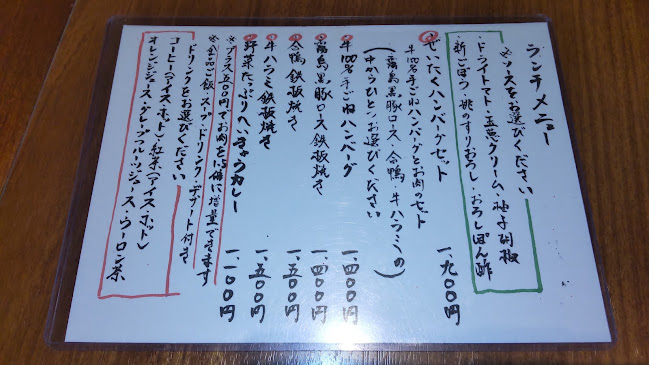 ランチメニュー
※ソースをお選びください
・ドライトマト・玉葱クリーム・柚子胡椒
・新ごぼう・桃のすりおろし・おろしぽん酢
ぜいたくハンバーグセット 一、九〇〇円
牛100%手ごねハンバーグとお肉のセット
(霧島黒豚ロース・合鴨・牛ハラミへの
中からひとつお選びください)
牛100%手ごねハンバーグ 一、四〇〇円
霧島黒豚ロース鉄板焼き 一、四〇〇円
合鴨鉄板焼き 一、五〇〇円
牛ハラミ鉄板焼き 一、五〇〇円
野菜たっぷりへいきゅうカレー 一、一〇〇円
※プラス五〇〇円でお肉を1.5倍に増量できます
※全品ご飯・スープ・ドリンク・デザート付き
・ドリンクをお選びください
コーヒー(アイス・ホット)・紅茶(アイス・ホット)
オレンジジュース・グレープフルーツジュース・ウーロン茶